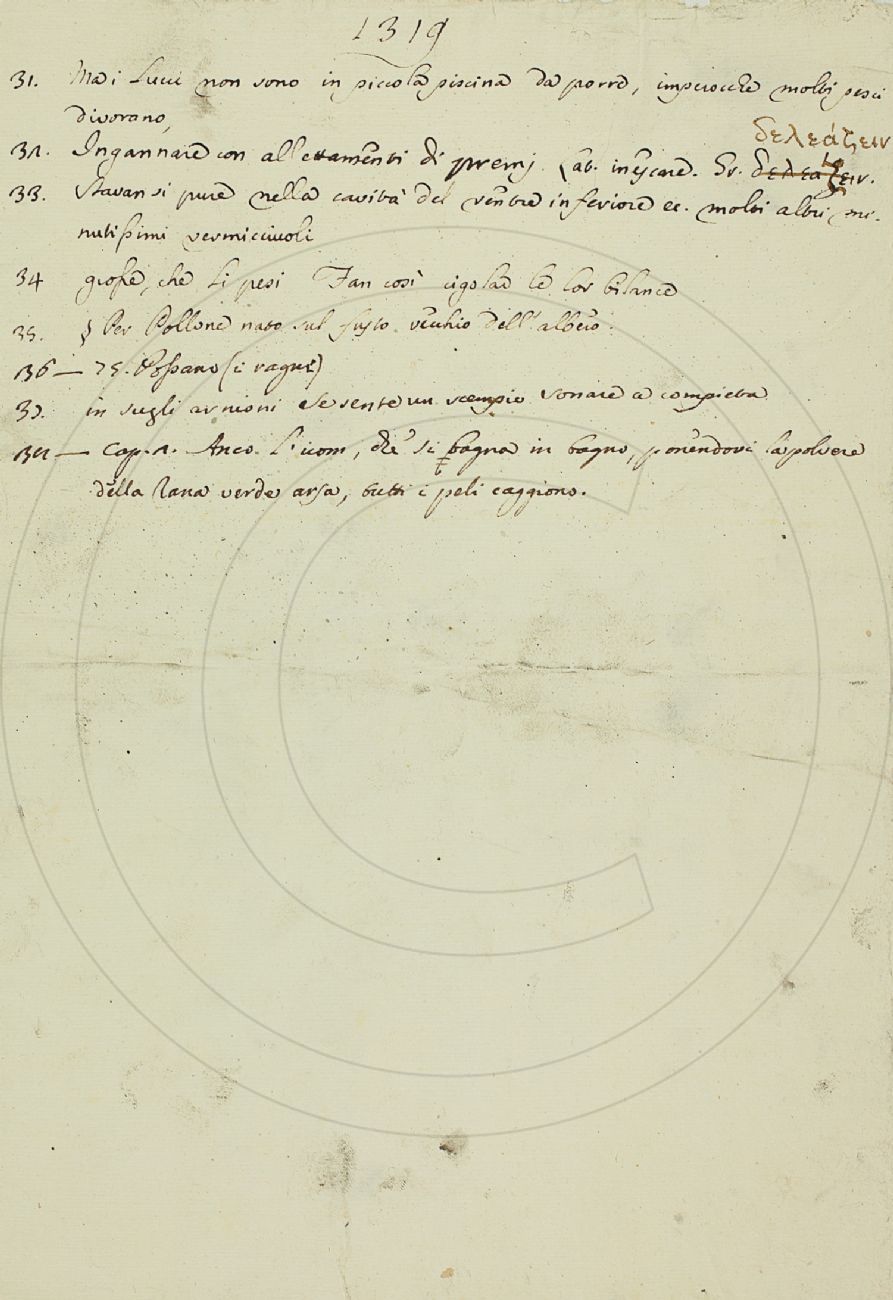 1319
31. Ma i Lucci non sono in piccola piscina da porre, impciocchè molti pesci
divorano,
32. Ingannare con allettamenti di premj. Lat. inescare. Gr. δελεάζειν.
δελεάζειν
33. Stavansi pure nella cavità del ventre inferiore ec. molti altri mi-
nutissimi vermicciuoli
34 grosse, che li pesi Fan così cigolar le lor bilance
35. § Per Pollone nato sul fusto vecchio dell' albero.
136 — 75. Possano (i ragni)
37. in sugli arnioni se sente un scempio sonare a compieta
— cap. 2. Anco l'uom, che si bagna in bagno, ponendovi la polvere
della Rana verde arsa, tutti i peli caggiono.